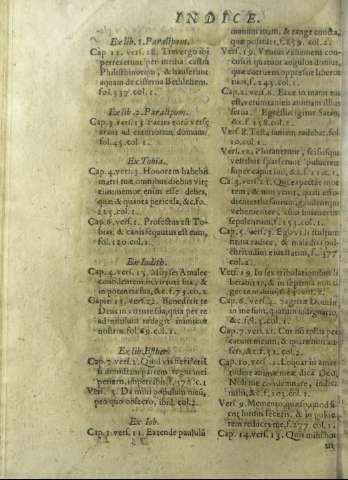 INDICE.
Ex lib. 1. Paralipom.
Cap. 11. vers. 18. Tres ergo isti
perrexerunt per media castra
Philisthinorum, & hauserunt
aquam de cisterna Bethlehem.
fol. 337. col. 1.
Ex lib. 2. Paralipom.
Cap. 3. vers. 13.
erant ad exteriorem domum,
fol. 45. col. 1.
Ex Tobia.
Cap. 4. vers. 3. Honorem habebis
matri tuæ omnibus diebus vitæ
eius: memor enim esse debes,
quæ & quanta pericula, &c. fo.
225. col. 1.
Cap. 6. vers. 1. Profectus est To-
bias, & canis sequutus est eum,
fol. 120. col. 1.
Ex Iudith.
Cap. 4. vers. 13. Moyses Amalec
confidentem in virtute sua, &
in potentia sua, &c. f. 74. co. 2.
Cap. 13. vers. 22. Benedixit te
Deus in virtute sua, quia per te
ad nihilum redegit inimicos
nostros. fol. 49. col. 1.
Ex lib. Esther.
Cap. 7. vers. 2. Quid vis fieri: etiā
si dimidiam partem regni mei
petieris, impetrabis. f. 378. c. 1
Vers. 3. Da mihi populum meū,
pro quo obsecro, ibid. col. 2.
Ex Iob.
Cap. 1. vers. 11. Extende paululū
manum tuam, & tange cuncta,
quæ possidet, f. 259. col. 2.
Vers. 19. Ventus vehemens con-
cussit quatuor angulos domus,
quæ corruens oppressit liberos
tuos, f. 243. col. 1.
Cap. 2. vers. 6. Ecce in manu tua
est, verumtamen animam illius
serva. Egressus igitur Satan,
&c. f. 258. col. 1.
Vers. 8. Testa saniem radebat, fol.
10. col. 1.
Vers. 12. Plorauerunt, scissisque
vestibus sparserunt puluerem
super caput suum, &c. f. 212. col. 1.
Ca. 3. vers. 21. Qui expectāt mor-
tem, & non venit, quasi effo-
dientes thesaurum, gaudentque
vehementer, cum inuenerint
sepulcrum, f. 151. col. 1.
Cap. 5. vers. 3. Ego vidi stultum
firma radice, & maledixi pul-
chritudini eius statim, f. 377.
col. 2.
Vers. 19. In sex tribulationibus li-
berabit te, & in septima non tā-
get te malum,
Cap. 6. vers. 4. Sagittæ Domini
in me sunt, quarum indignatio,
&c.
Cap. 7. vers. 21. Cur nō tollis pec-
catum meum, & quare non au-
fers, &c. f. 32. col. 2.
Cap. 10. vers. 1. Loquar in amari-
tudine animæ meæ, dicā Deo,
Noli me condemnare, indica
mihi, &c. f. 302. col. 1.
Vers. 9. Memento, quæso, quod si-
cut lutum feceris me, & in pulue-
rem reduces me, f. 277. col. 1.
Cap. 14. vers. 13. Quis mihi hoc